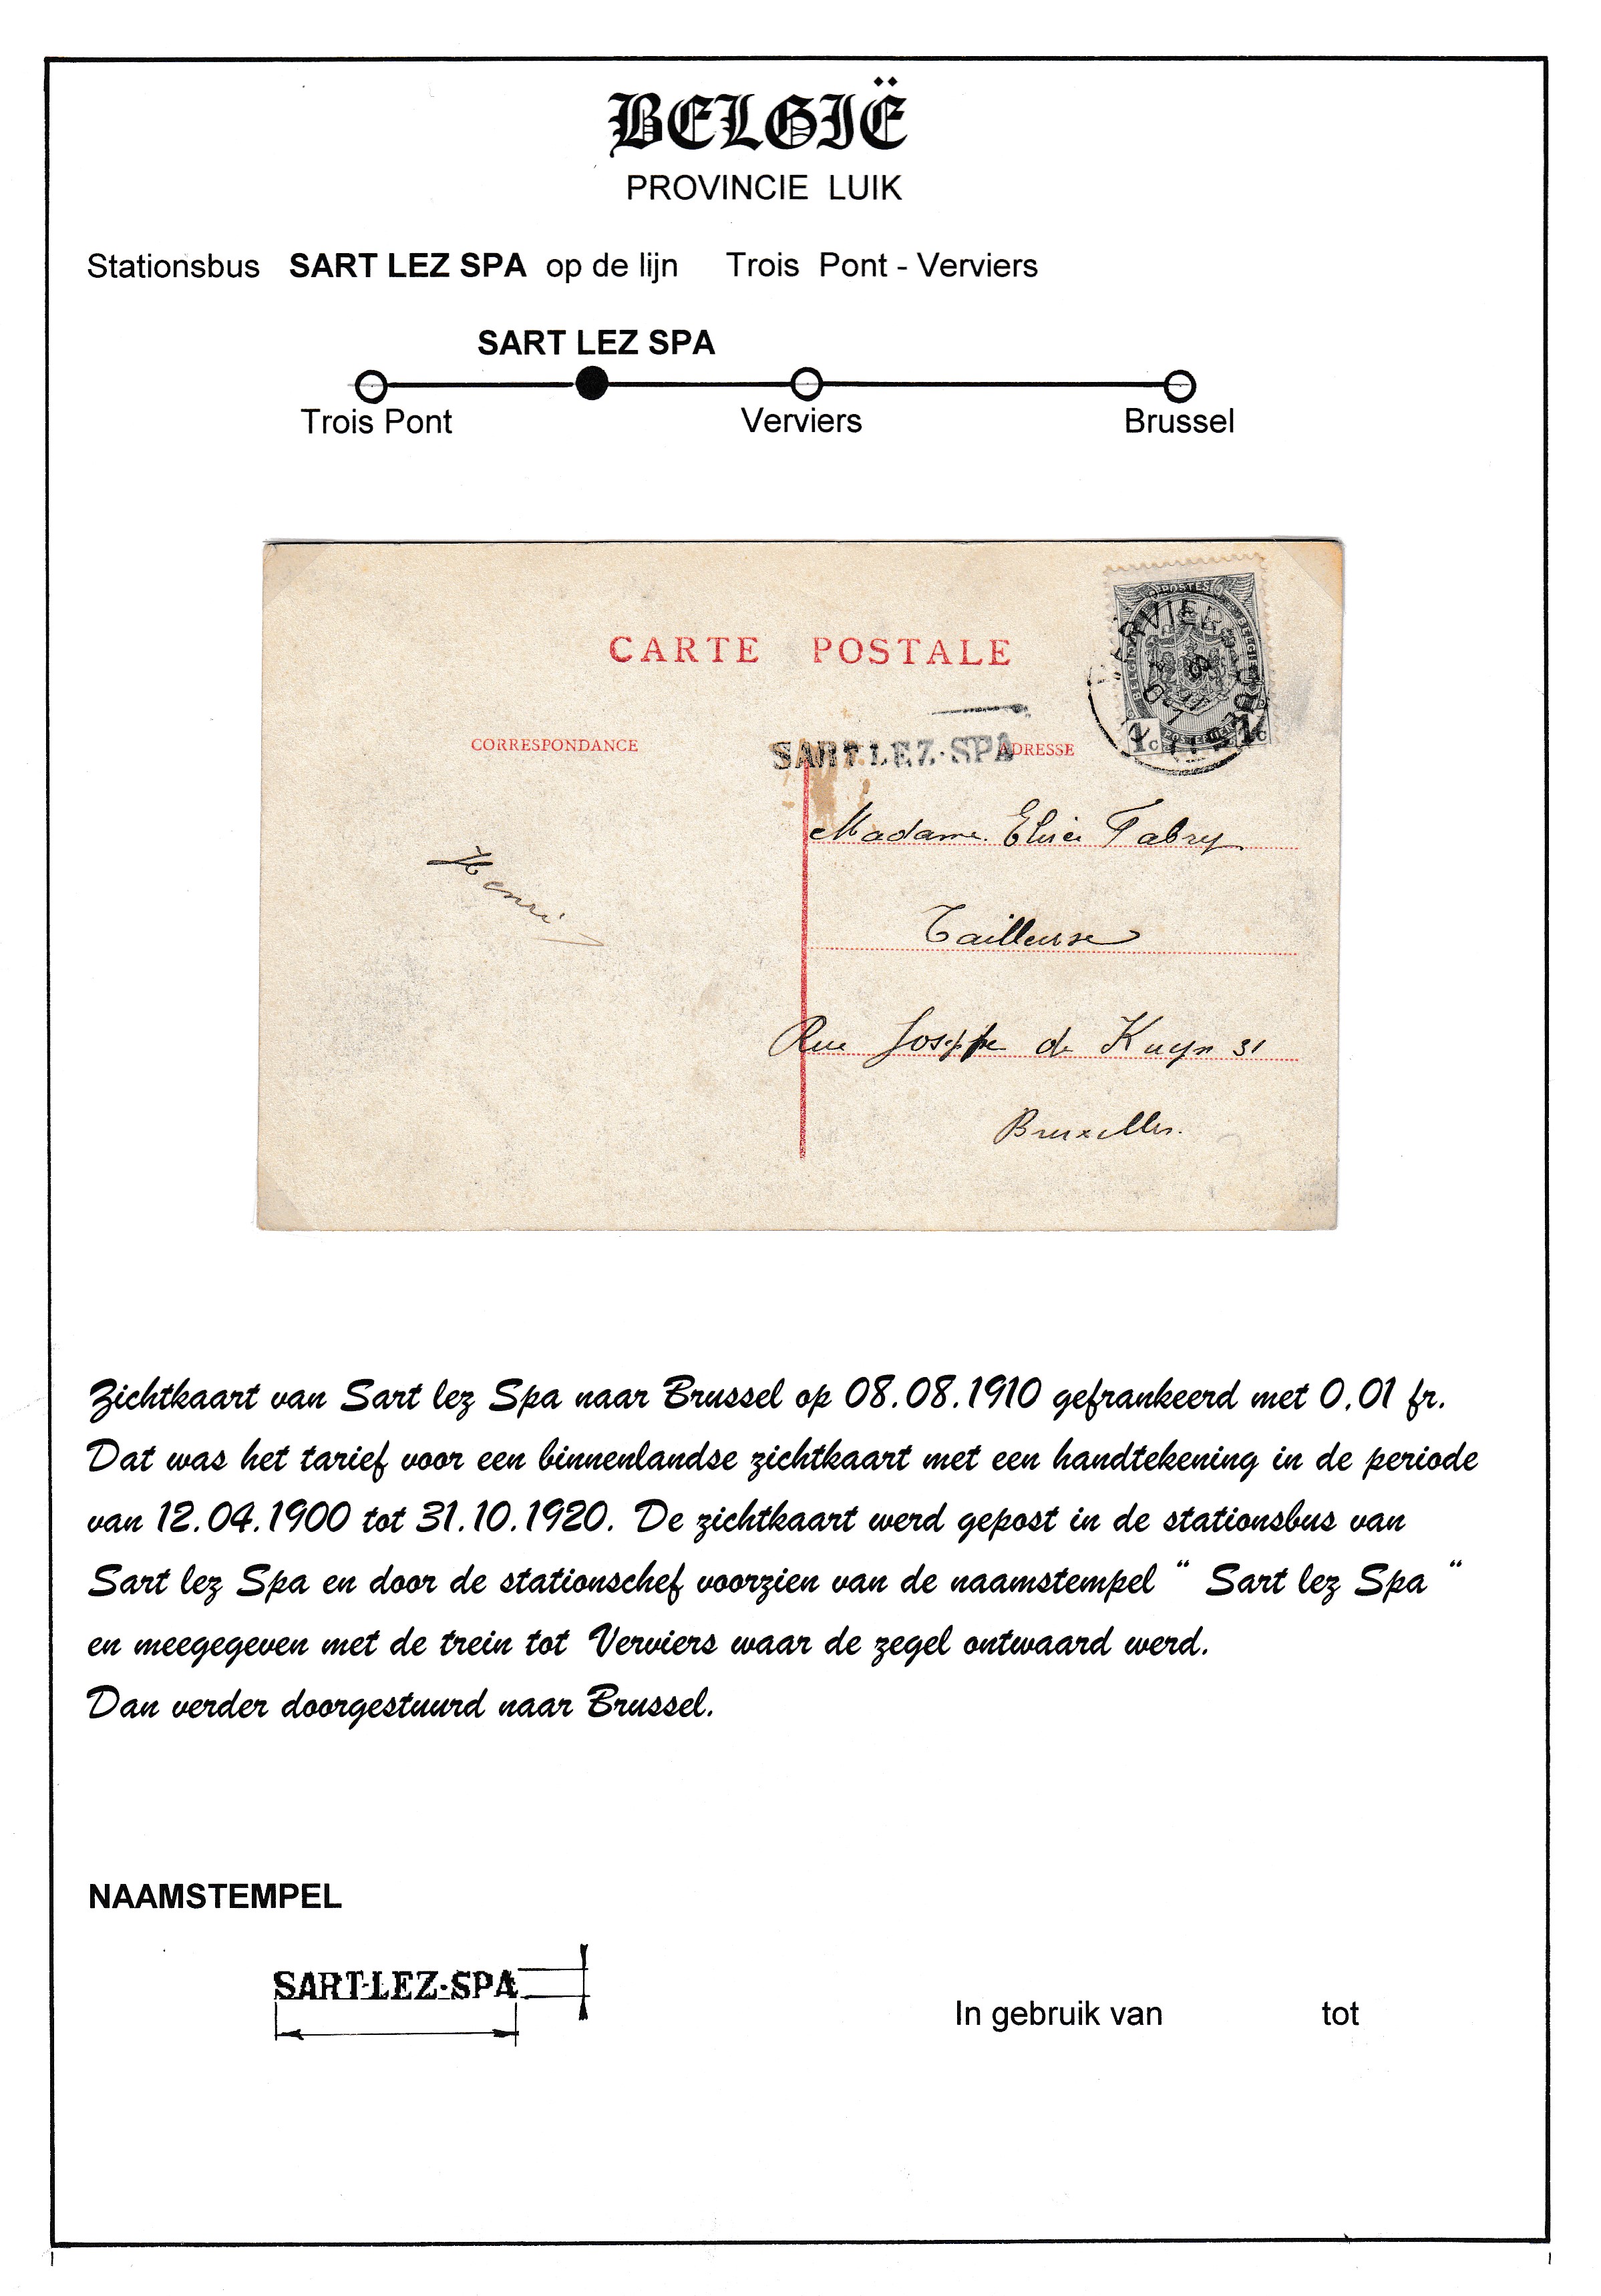 BELGIË
PROVINCIE LUIK
Stationsbus SART LEZ SPA op de lijn Trois Pont - Verviers
SART LEZ SPA
Trois Pont Verviers Brussel
CARTE POSTALE
CORRESPONDANCE
SART-LEZ-SPA
ADRESSE
POSTES
1c 1c
Madame Elise Fabry
Henri
Tailleuse
Rue Joseph de Kuyn 31
Bruxelles.
Zichtkaart van Sart lez Spa naar Brussel op 08.08.1910 gefrankeerd met 0.01 fr.
Dat was het tarief voor een binnenlandse zichtkaart met een handtekening in de periode
van 12.04.1900 tot 31.10.1920. De zichtkaart werd gepost in de stationsbus van
Sart lez Spa en door de stationschef voorzien van de naamstempel “ Sart lez Spa “
en meegegeven met de trein tot Verviers waar de zegel ontwaard werd.
Dan verder doorgestuurd naar Brussel.
NAAMSTEMPEL
SART-LEZ-SPA
In gebruik van tot